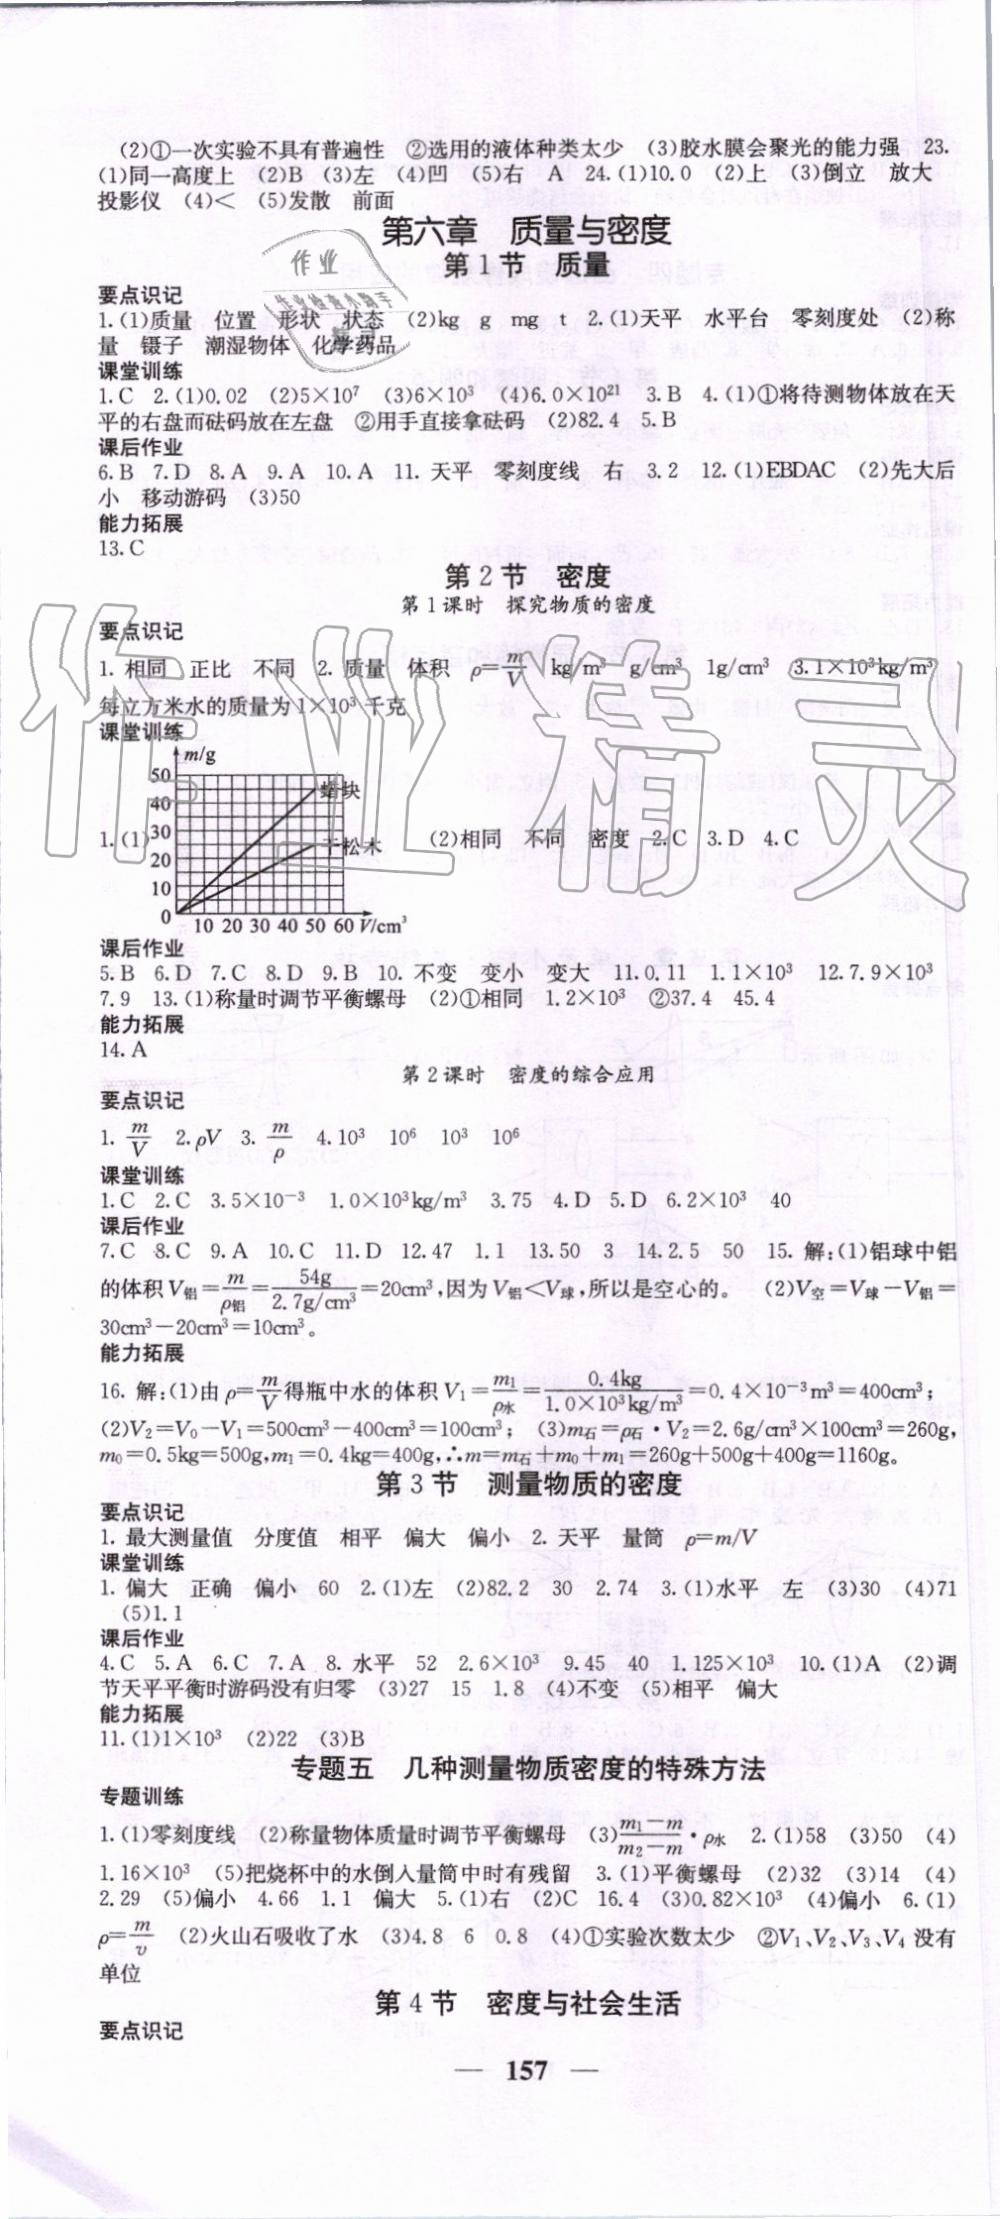 (2)①一次实验不具有普遍性 ②选用的液体种类太少 (3)胶水膜会聚光的能力强 23.
(1)同一高度上 (2)B (3)左 (4)凹 (5)右 A 24.(1)10.0 (2)上 (3)倒立 放大
投影仪 (4)< (5)发散 前面
第六章 质量与密度
第1节 质量
要点识记
1.(1)质量 位置 形状 状态 (2)kg g mg t 2.(1)天平 水平台 零刻度处 (2)称
量 镊子 潮湿物体 化学药品
课堂训练
1.C 2.(1)0.02 (2)5×10⁷ (3)6×10³ (4)6.0×10²¹ 3.B 4.(1)①将待测物体放在天
平的右盘而砝码放在左盘 ②用手直接拿砝码 (2)82.4 5.B
课后作业
6.B 7.D 8.A 9.A 10.A 11.天平 零刻度线 右 3.2 12.(1)EBDAC (2)先大后
小 移动游码 (3)50
能力拓展
13.C
第2节 密度
第1课时 探究物质的密度
要点识记
1.相同 正比 不同 2.质量 体积 ρ=m/V kg/m³ g/cm³ 1g/cm³ 3.1×10³kg/m³
每立方米水的质量为1×10³千克
课堂训练
m/g
50
40
30
20
10
0
蜡块
干松木
10 20 30 40 50 60 V/cm³
1.(1) (2)相同 不同 密度 2.C 3.D 4.C
课后作业
5.B 6.D 7.C 8.D 9.B 10.不变 变小 变大 11.0.11 1.1×10³ 12.7.9×10³
7.9 13.(1)称量时调节平衡螺母 (2)①相同 1.2×10³ ②37.4 45.4
能力拓展
14.A
第2课时 密度的综合应用
要点识记
1. m/V 2.ρV 3. m/ρ 4.10³ 10⁶ 10³ 10⁶
课堂训练
1.C 2.C 3.5×10⁻³ 1.0×10³kg/m³ 3.75 4.D 5.D 6.2×10³ 40
课后作业
7.C 8.C 9.A 10.C 11.D 12.47 1.1 13.50 3 14.2.5 50 15.解:(1)铝球中铝
的体积V铝=m/ρ铝=54g/2.7g/cm³=20cm³,因为V铝<V球,所以是空心的。 (2)V空=V球-V铝=
30cm³-20cm³=10cm³。
能力拓展
16.解:(1)由ρ=m/V得瓶中水的体积V₁=m₁/ρ水=0.4kg/1.0×10³kg/m³=0.4×10⁻³m³=400cm³;
(2)V₂=V₀-V₁=500cm³-400cm³=100cm³; (3)m石=ρ石·V₂=2.6g/cm³×100cm³=260g,
m₀=0.5kg=500g,m₁=0.4kg=400g,∴m=m石+m₀+m₁=260g+500g+400g=1160g。
第3节 测量物质的密度
要点识记
1.最大测量值 分度值 相平 偏大 偏小 2.天平 量筒 ρ=m/V
课堂训练
1.偏大 正确 偏小 60 2.(1)左 (2)82.2 30 2.74 3.(1)水平 左 (3)30 (4)71
(5)1.1
课后作业
4.C 5.A 6.C 7.A 8.水平 52 2.6×10³ 9.45 40 1.125×10³ 10.(1)A (2)调
节天平平衡时游码没有归零 (3)27 15 1.8 (4)不变 (5)相平 偏大
能力拓展
11.(1)1×10³ (2)22 (3)B
专题五 几种测量物质密度的特殊方法
专题训练
1.(1)零刻度线 (2)称量物体质量时调节平衡螺母 (3)m₁-m/m₂-m·ρ水 2.(1)58 (3)50 (4)
1.16×10³ (5)把烧杯中的水倒入量筒中时有残留 3.(1)平衡螺母 (2)32 (3)14 (4)
2.29 (5)偏小 4.66 1.1 偏大 5.(1)右 (2)C 16.4 (3)0.82×10³ (4)偏小 6.(1)
ρ=m/v (2)火山石吸收了水 (3)4.8 6 0.8 (4)①实验次数太少 ②V₁、V₂、V₃、V₄没有
单位
第4节 密度与社会生活
要点识记
— 157 —
作业
作业检查小助手
精灵
作业精灵